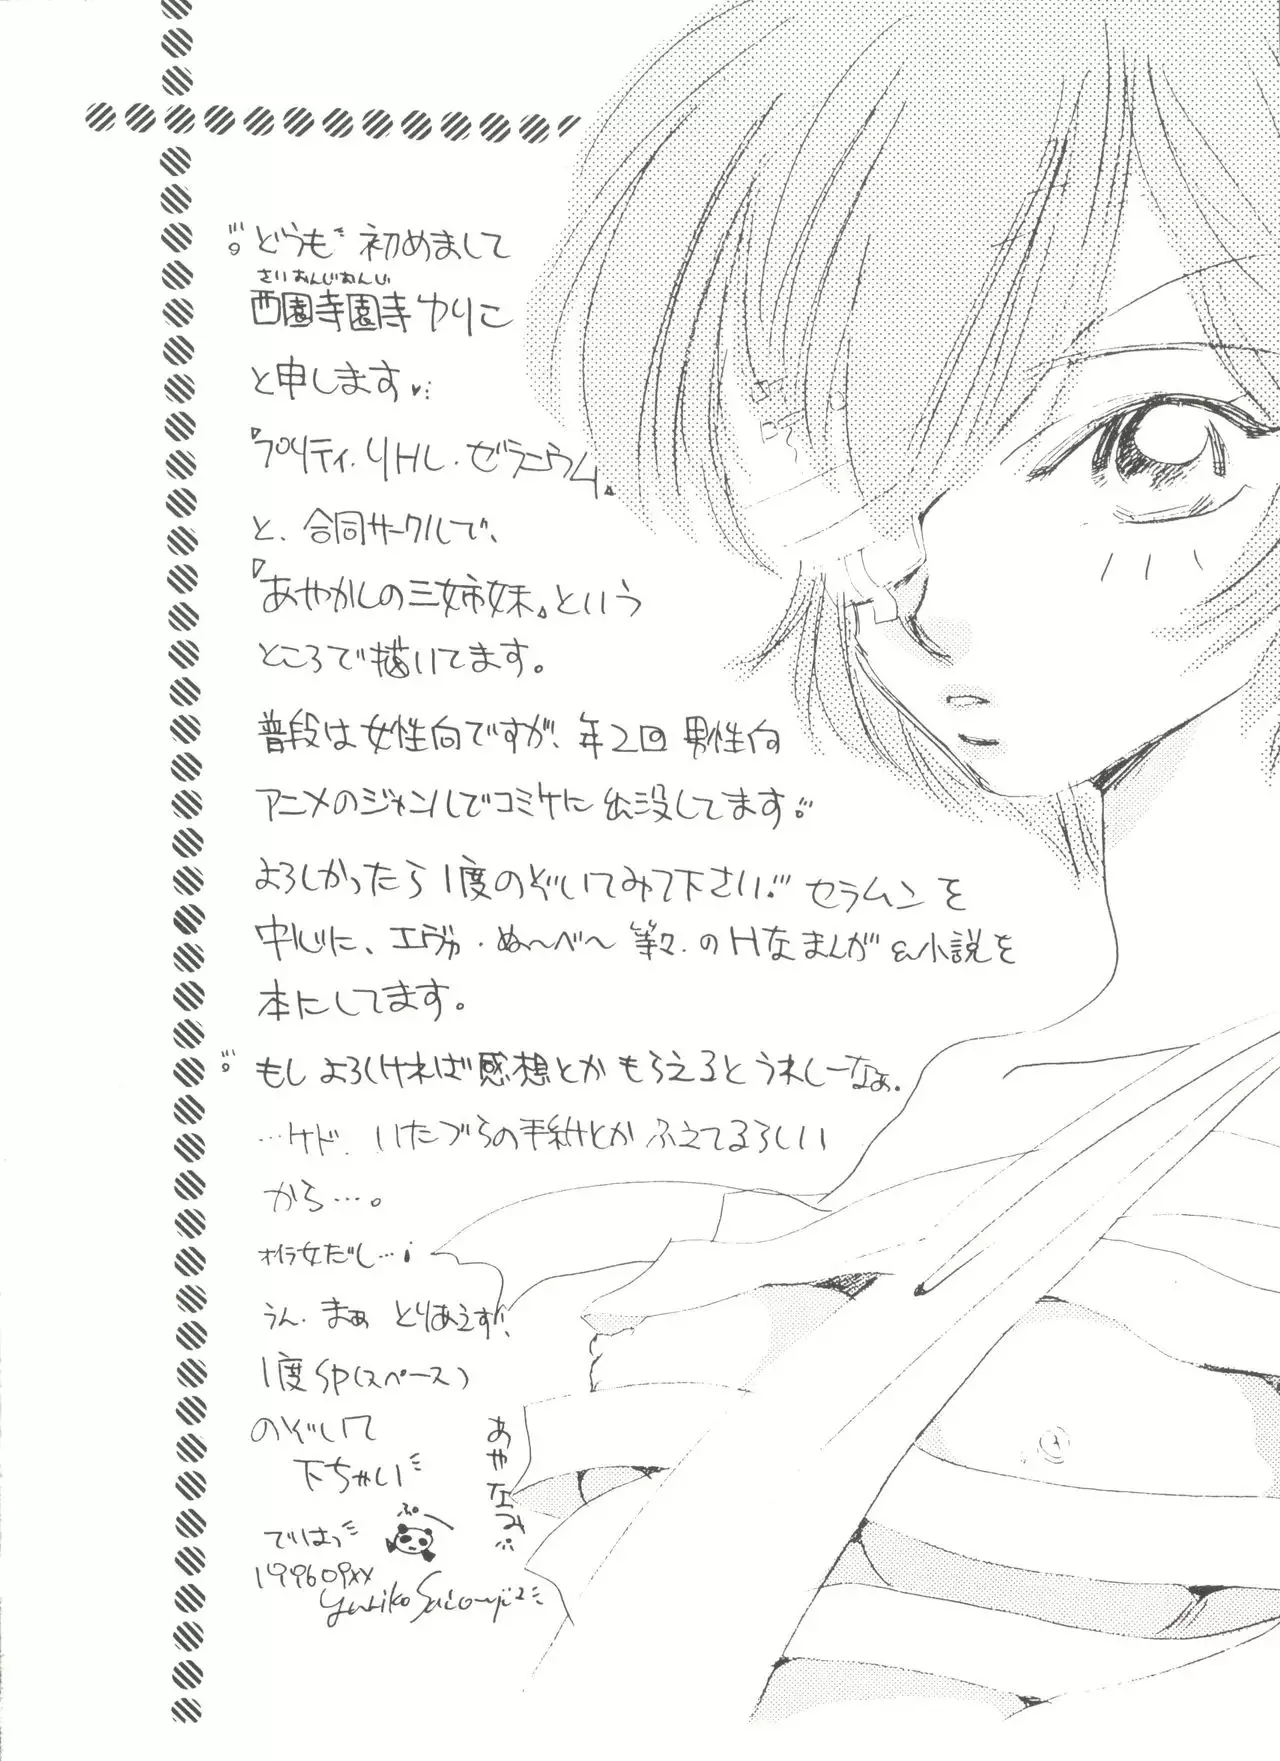 どうも 初めまして
さいおんじおんじ
西園寺園寺ゆりこ
と申します♥
『プリティ.リトル.ゼラニウム』
と、合同サークルで、
『あやかしの三姉妹』という
ところで描いてます。
普段は女性向ですが、年2回 男性向
アニメのジャンルでコミケに出没してます
よろしかったら1度のぞいてみて下さい! セラムンを
中心に、エヴァ・ぬ〜べ〜 等々.のHなまんが&小説を
本にしてます。
もしよろしければ感想とかもらえるとうれしーなぁ.
…ケド.いたづらの手紙とかふえてるらしい
から…。
オイラ女だし…!
うん.まぁ とりあえず!
1度SP(スペース)
のぞいて
下ちゃい
ぷー
ではっ
199609XX
Yuriko Saionji2